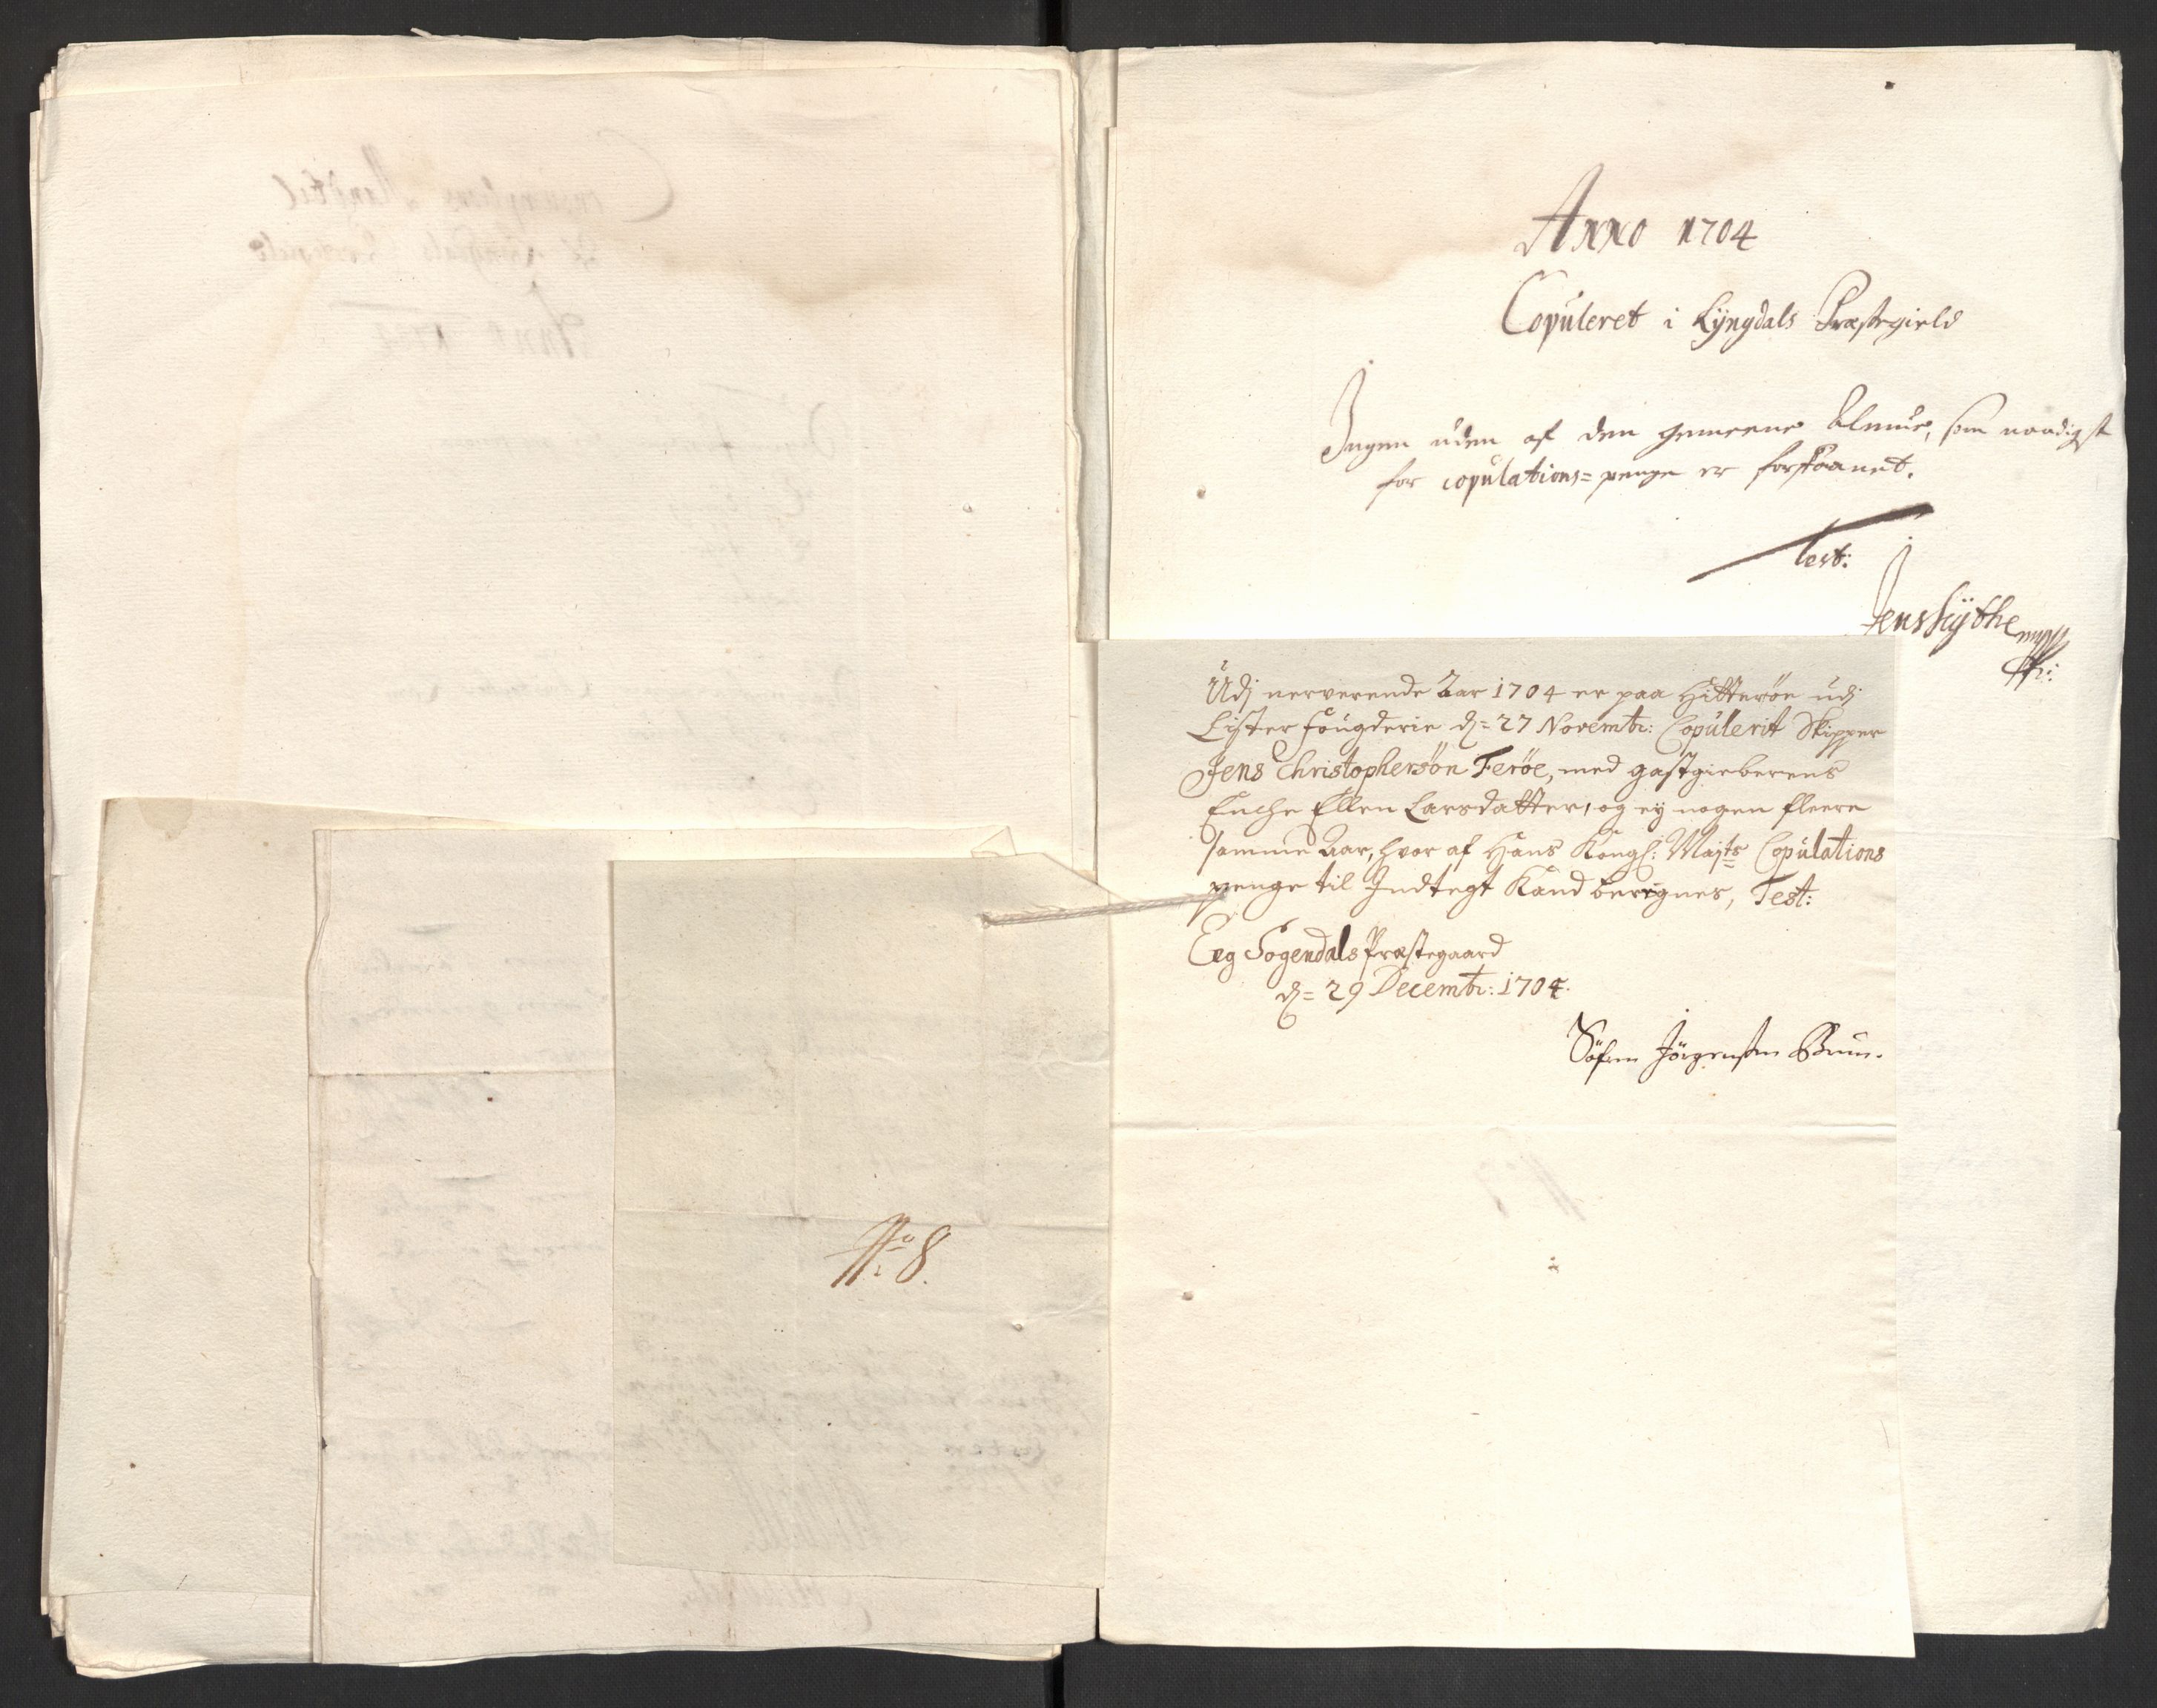 Anno 1704
Copuleret i Lÿngdals Præstegield
Ingen uden af den gemeene Almue, som naadigst
for copulations=penge er forskaanet.
Test:
Jens
Udj nerverende Aar 1704 er paa Hitterøe udj
Lister fougderie d= 27 Novembr: Copulerit Skipper
Jens Christophersøn Ferøe, med gastgieberens
Enche Ellen Larsdatter, og ey nogen fleere
samme Aar, hvor af Hans Kongl: Majts Copulations
penge til Indtegt Kand beregnes, Test:
Eeg Sogendals Præstegaard
d= 29 Decembr: 1704.
Søfren Jörgensen Bruun.
No 8.